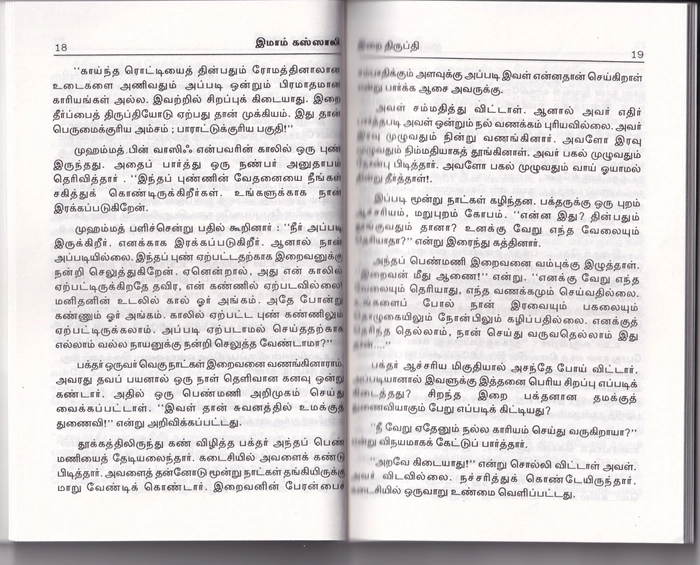 18
இமாம் கஸ்ஸாலி
"காய்ந்த ரொட்டியைத் தின்பதும் ரோமத்தினாலான
உடைகளை அணிவதும் அப்படி ஒன்றும் பிரமாதமான
காரியங்கள் அல்ல. இவற்றில் சிறப்புக் கிடையாது. இறை
தீர்ப்பைத் திருப்தியோடு ஏற்பது தான் முக்கியம். இது தான்
பெருமைக்குரிய அம்சம் ; பாராட்டுக்குரிய பகுதி!"
முஹம்மத் பின் வாஸிஃ என்பவரின் காலில் ஒரு புண்
இருந்தது. அதைப் பார்த்து ஒரு நண்பர் அனுதாபம்
தெரிவித்தார் . "இந்தப் புண்ணின் வேதனையை நீங்கள்
சகித்துக் கொண்டிருக்கிறீர்கள். உங்களுக்காக நான்
இரக்கப்படுகிறேன்.
முஹம்மத் பளிச்சென்று பதில் கூறினார் : "நீர் அப்படி
இருக்கிறீர். எனக்காக இரக்கப்படுகிறீர். ஆனால் நான்
அப்படியில்லை. இந்தப் புண் ஏற்பட்டதற்காக இறைவனுக்கு
நன்றி செலுத்துகிறேன். ஏனென்றால், அது என் காலில்
ஏற்பட்டிருக்கிறதே தவிர, என் கண்ணில் ஏற்படவில்லை!
மனிதனின் உடலில் கால் ஓர் அங்கம். அதே போன்று
கண்ணும் ஓர் அங்கம். காலில் ஏற்பட்ட புண் கண்ணிலும்
ஏற்பட்டிருக்கலாம். அப்படி ஏற்படாமல் செய்ததற்காக
எல்லாம் வல்ல நாயனுக்கு நன்றி செலுத்த வேண்டாமா?"
பக்தர் ஒருவர் வெகு நாட்கள் இறைவனை வணங்கினாராம்.
அவரது தவப் பயனால் ஒரு நாள் தெளிவான கனவு ஒன்று
கண்டார். அதில் ஒரு பெண்மணி அறிமுகம் செய்து
வைக்கப்பட்டாள். "இவள் தான் சுவனத்தில் உமக்குத்
துணைவி!" என்று அறிவிக்கப்பட்டது.
தூக்கத்திலிருந்து கண் விழித்த பக்தர் அந்தப் பெண்
மணியைத் தேடியலைந்தார். கடைசியில் அவளைக் கண்டு
பிடித்தார். அவளைத் தன்னோடு மூன்று நாட்கள் தங்கியிருக்கு
மாறு வேண்டிக் கொண்டார். இறைவனின் பேரன்பை
இறை திருப்தி
19
அளவுக்கு அப்படி இவள் என்னதான் செய்கிறாள்
பார்க்க ஆசை அவருக்கு.
அவள் சம்மதித்து விட்டாள். ஆனால் அவர் எதிர்
அவள் ஒன்றும் நல் வணக்கம் புரியவில்லை. அவர்
இரவு முழுவதும் நின்று வணங்கினார். அவளோ இரவு
முழுவதும் நிம்மதியாகத் தூங்கினாள். அவர் பகல் முழுவதும்
நோன்பு பிடித்தார். அவளோ பகல் முழுவதும் வாய் ஓயாமல்
தின்று தீர்த்தாள்!.
இப்படி மூன்று நாட்கள் கழிந்தன. பக்தருக்கு ஒரு புறம்
ஆச்சரியம், மறுபுறம் கோபம். "என்ன இது? தின்பதும்
தூங்குவதும் தானா? உனக்கு வேறு எந்த வேலையும்
தெரியாதா?" என்று இரைந்து கத்தினார்.
அந்தப் பெண்மணி இறைவனை வம்புக்கு இழுத்தாள்.
"இறைவன் மீது ஆணை!" என்று. "எனக்கு வேறு எந்த
வேலையும் தெரியாது, எந்த வணக்கமும் செய்வதில்லை.
உங்களைப் போல் நான் இரவையும் பகலையும்
தொழுகையிலும் நோன்பிலும் கழிப்பதில்லை. எனக்குத்
தெரிந்த தெல்லாம், நான் செய்து வருவதெல்லாம் இது
தான்...."
பக்தர் ஆச்சரிய மிகுதியால் அசந்தே போய் விட்டார்.
அப்படியானால் இவளுக்கு இத்தனை பெரிய சிறப்பு எப்படிக்
கிடைத்தது? சிறந்த இறை பக்தனான தமக்குத்
துணைவியாகும் பேறு எப்படிக் கிட்டியது?
"நீ வேறு ஏதேனும் நல்ல காரியம் செய்து வருகிறாயா?"
என்று விநயமாகக் கேட்டுப் பார்த்தார்.
"அறவே கிடையாது!" என்று சொல்லி விட்டாள் அவள்.
அவர் விடவில்லை. நச்சரித்துக் கொண்டேயிருந்தார்.
கடைசியில் ஒருவாறு உண்மை வெளிப்பட்டது.